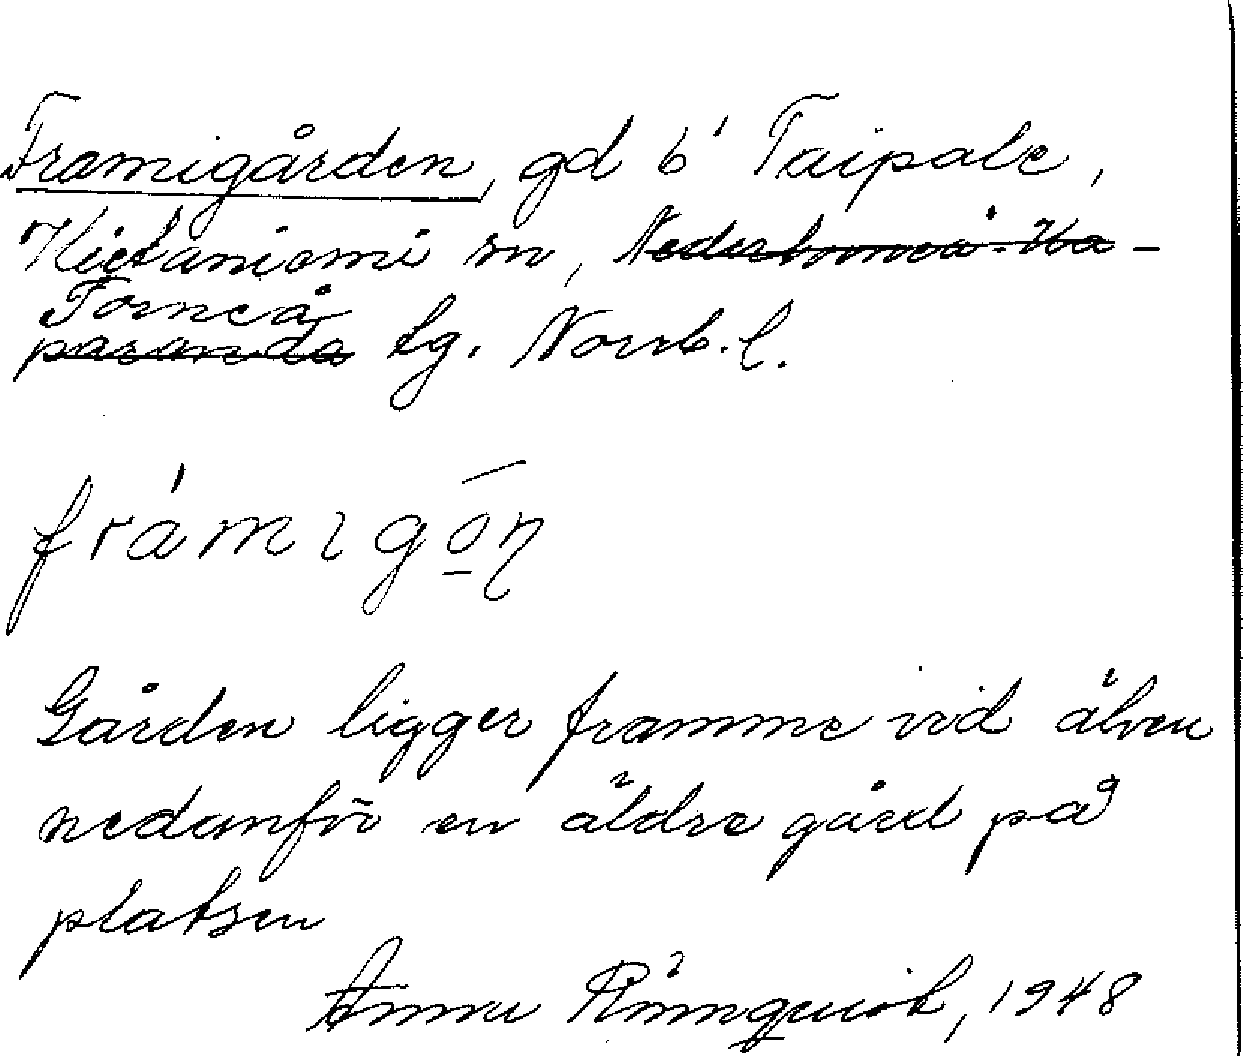 Framigården, gd i Taipale,
Hietaniemi sn, Nedertorneå-Ha-
Torneå
paranda tg. Norrb. l.
frámıgó̱ṇ
Gården ligger framme vid älven
nedanför en äldre gård på
platsen
Anna Rönnquist, 1948